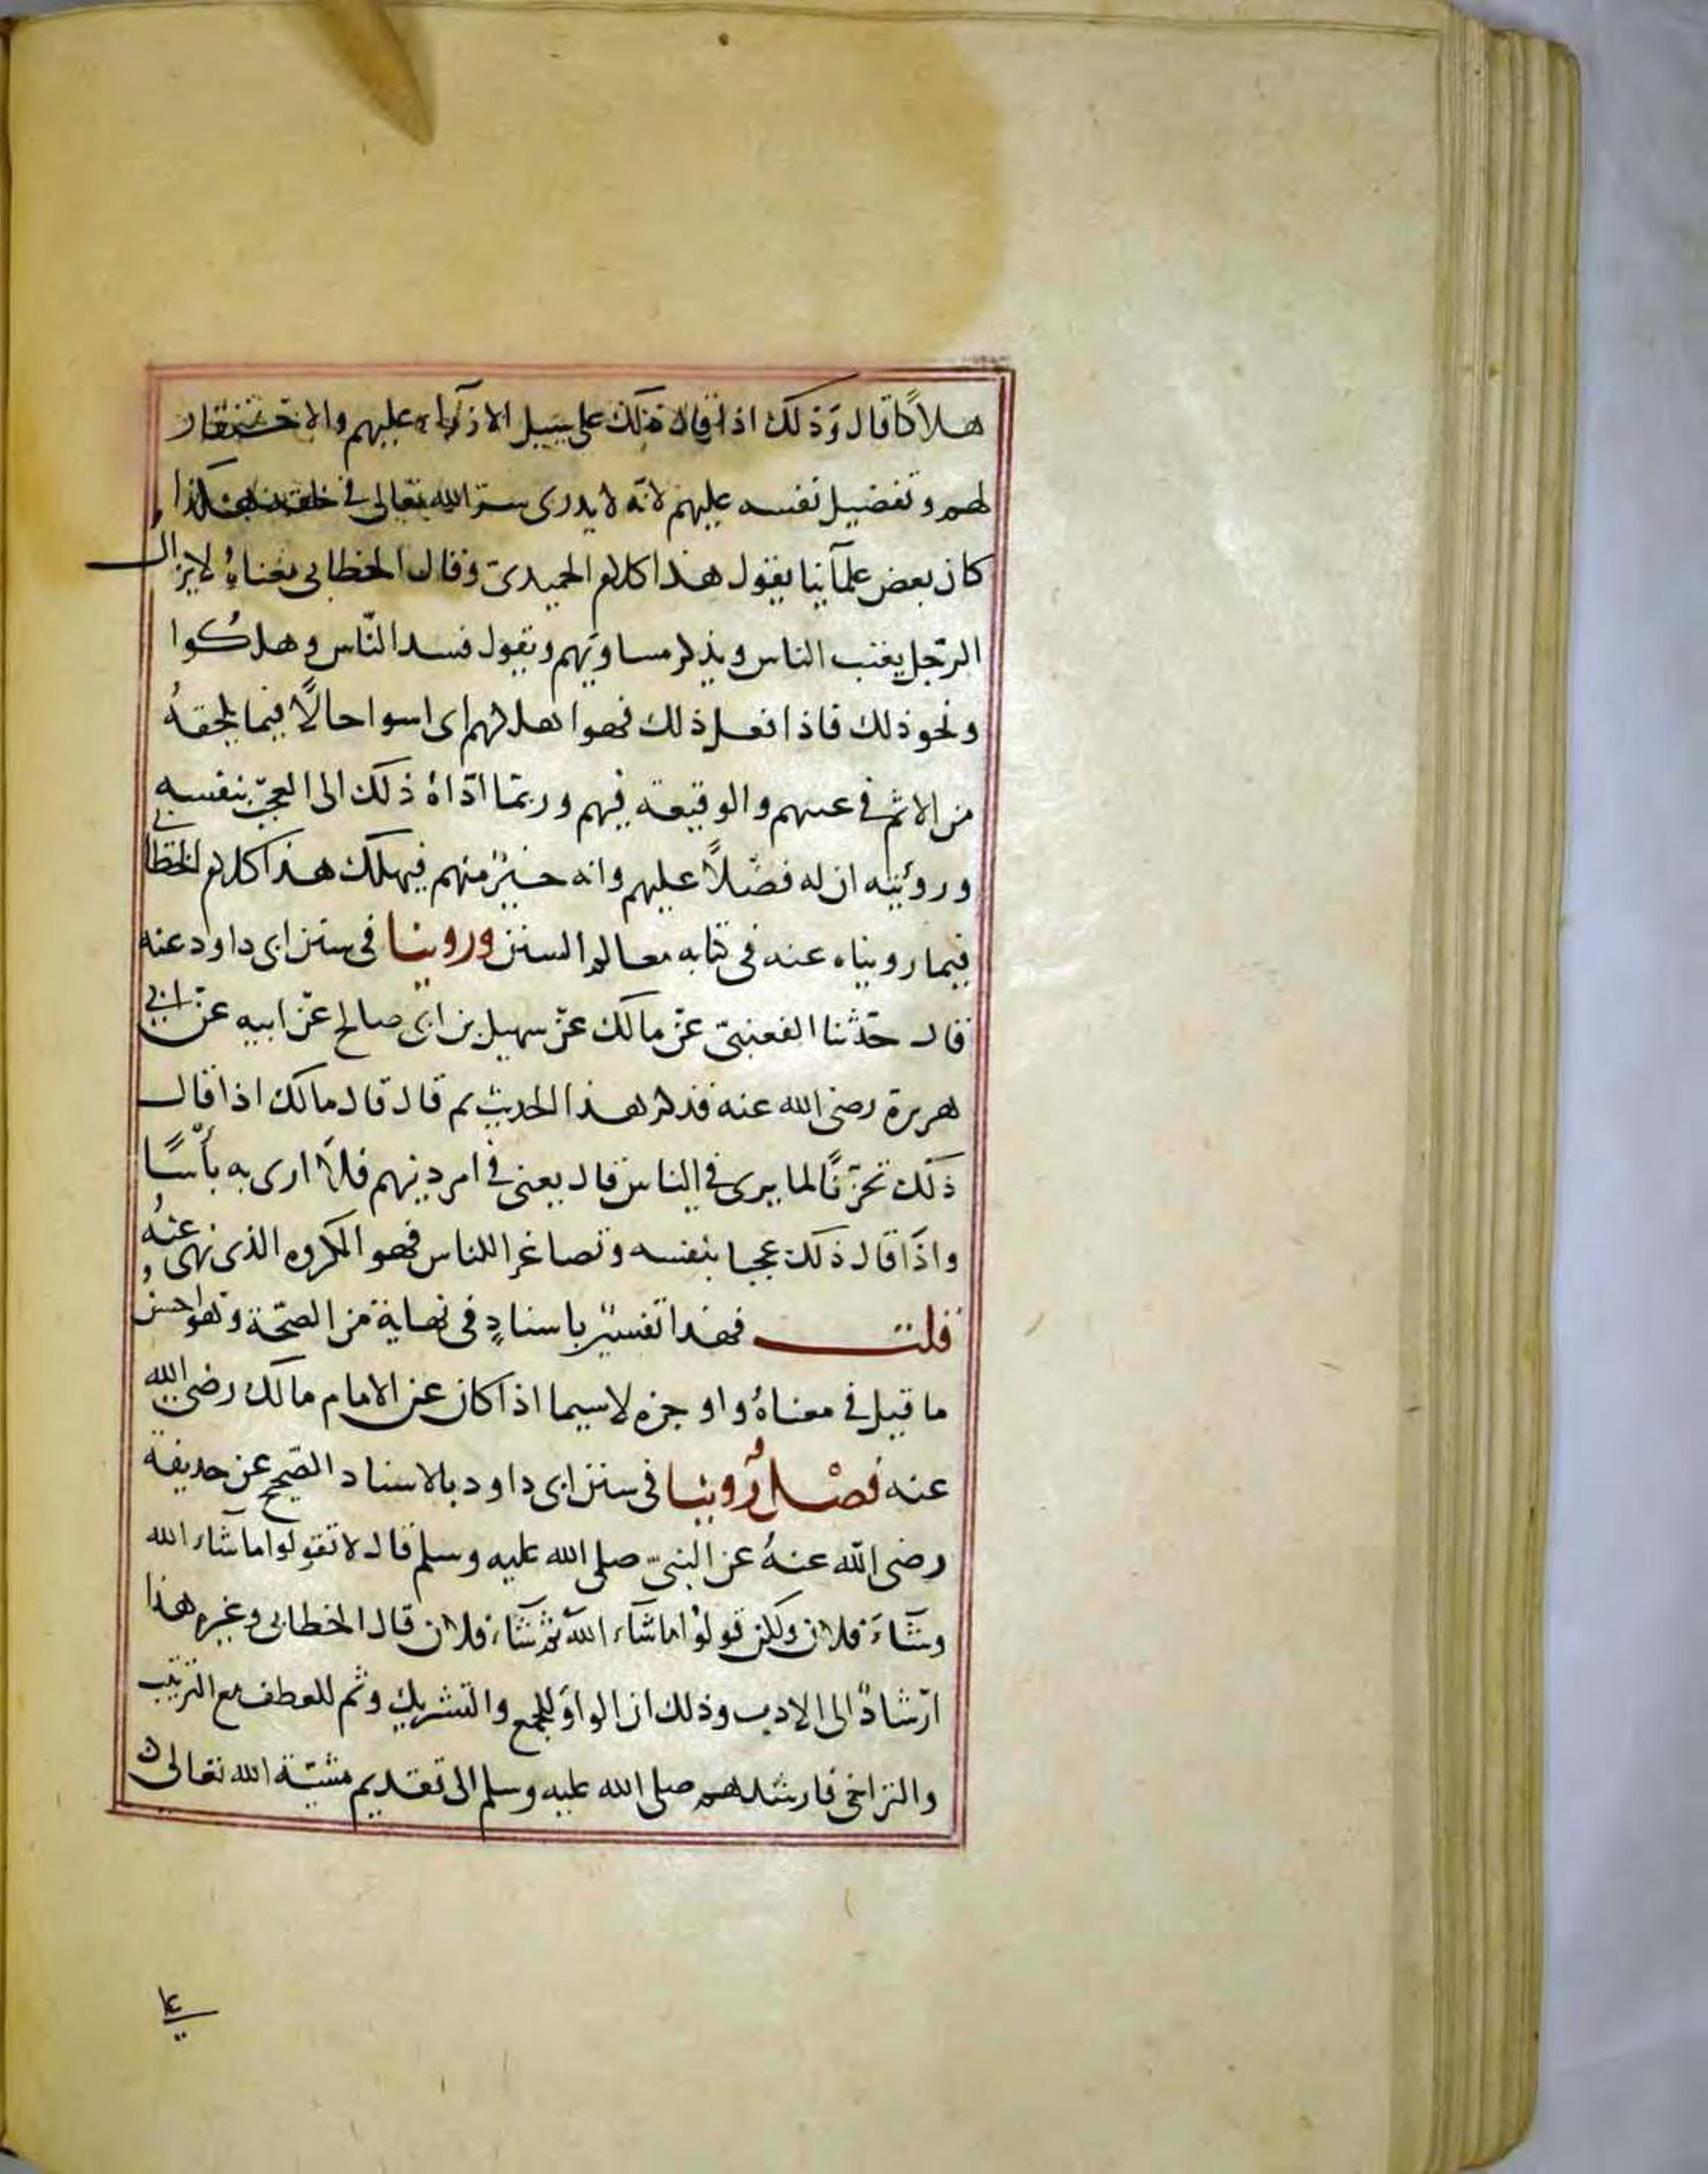 هلاكا قال وذلك اذا قال ذلك على سبيل الازراء عليهم والاحتقار
لهم وتفضيل نفسه عليهم لانه لا يدرى سر الله تعالى فى خلقه هكذا
كان بعض علمآئنا يقول هذا كلام الحميدى وقال الخطابى معناهُ لا يزال
الرجل يعيب الناس ويذكر مساويهم ويقول فسد النّاس وهلكُوا
ونحو ذلك فاذا فعل ذلك فهو اهلكهم اى اسوا حالًا فيما يلحقهُ
من الاثم فى عيبهم والوقيعة فيهم وربمّا ادّاهُ ذلك الى العجب بنفسه
ورؤيته ان له فضلًا عليهم وانه خيرٌ منهم فيهلك هذا كلام الخطابى
فيما رويناه عنه فى كتابه معالم السنن وروينا فى سنن ابى داود عنه
قال حدّثنا القعنبىّ عن مالك عن سهيل بن ابى صالح عن ابيه عن ابى
هريرة رضى الله عنه فذكر هذا الحديث ثم قال قال مالك اذا قال
ذلك تحزّنًا لما يرى فى الناس قال يعنى فى امر دينهم فلا ارى به بأسًا
واذا قال ذلك عجبا بنفسه وتصاغرا للناس فهو المكروه الذى نهى عنهُ
قلت فهذا تفسيرٌ باسنادٍ فى نهاية من الصّحّة وهو احسنُ
ما قيل فى معناهُ واوجزه لاسيما اذا كان عن الامام مالك رضى الله
عنه فصْل رُوينا فى سنن ابى داود بالاسناد الصّحيح عن حذيفة
رضى الله عنهُ عن النبىّ صلى الله عليه وسلم قال لا تقولوا ما شآء الله
وشآءَ فلان ولكن قولوْا ما شآء اللهُ ثم شآء فلان قال الخطابى وغيره هذا
ارشادٌ الى الادب وذلك ان الواوَ للجمع والتشريك وثم للعطف مع الترتيب
والتراخى فارشدهم صلى الله عليه وسلم الى تقديم مشيّة الله تعالى